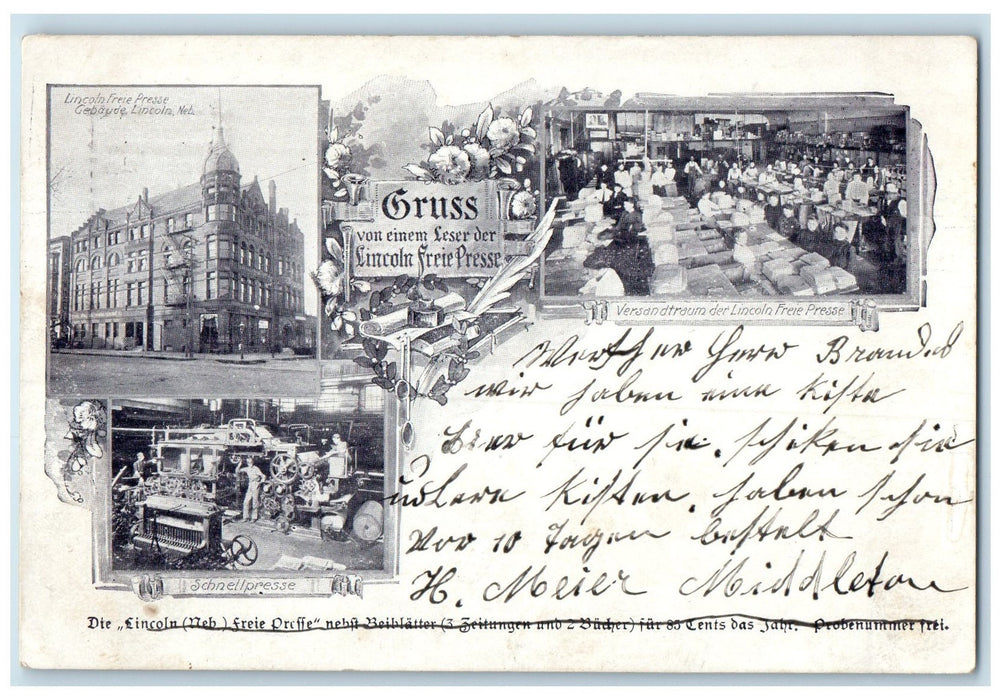 Lincoln Freie Presse
Gebäude, Lincoln, Neb.
Gruss
von einem Leser der
Lincoln Freie Presse
Versandtraum der Lincoln Freie Presse
Werther Herr Brandes
wir haben eine Kiste
Bier für sie. schiken sie
Kisten. haben schon
vor 10 Tagen bestelt
H. Meier Middleton
Schnellpresse
Die „Lincoln (Neb.) Freie Presse“ nebst Beiblätter (3 Zeitungen und 2 Bücher) für 85 Cents das Jahr. Probenummer frei.